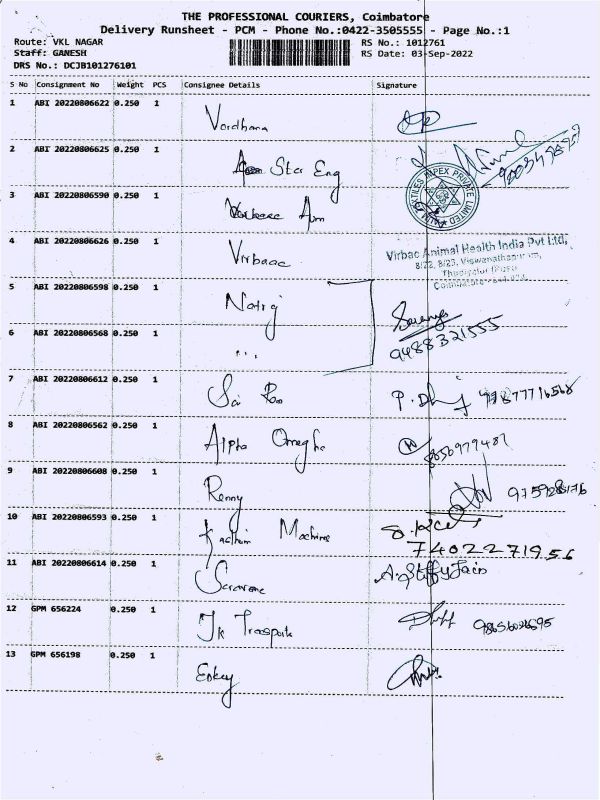 THE PROFESSIONAL COURIERS, Coimbatore
Delivery Runsheet - PCM - Phone No.:0422-3505555 - Page No.:1
Route: VKL NAGAR RS No.: 1012761
Staff: GANESH RS Date: 03-Sep-2022
DRS No.: DCJB101276101
S No Consignment No Weight PCS Consignee Details Signature
1 ABI 20220806622 0.250 1 Vardhana
2 ABI 20220806625 0.250 1 Star Eng
3 ABI 20220806590 0.250 1
TEXTILES IMPEX PRIVATE LIMITED
4 ABI 20220806626 0.250 1 Virbaac
Virbac Animal Health India Pvt Ltd,
8/22, 8/23, Viswanathapuram,
5 ABI 20220806598 0.250 1 Natraj
6 ABI 20220806568 0.250 1 9488321555
7 ABI 20220806612 0.250 1 Sai
8 ABI 20220806562 0.250 1 Alpha Omegha 8656979487
9 ABI 20220806608 0.250 1 Renny
10 ABI 20220806593 0.250 1 Machine
7402271956
11 ABI 20220806614 0.250 1
12 GPM 656224 0.250 1 JK
13 GPM 656198 0.250 1 Enkey